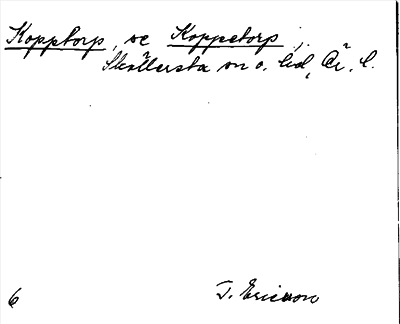 Kopptorp, se Koppetorp,
Sköllersta sn o. hd, Ör. l.
6 T. Ericson